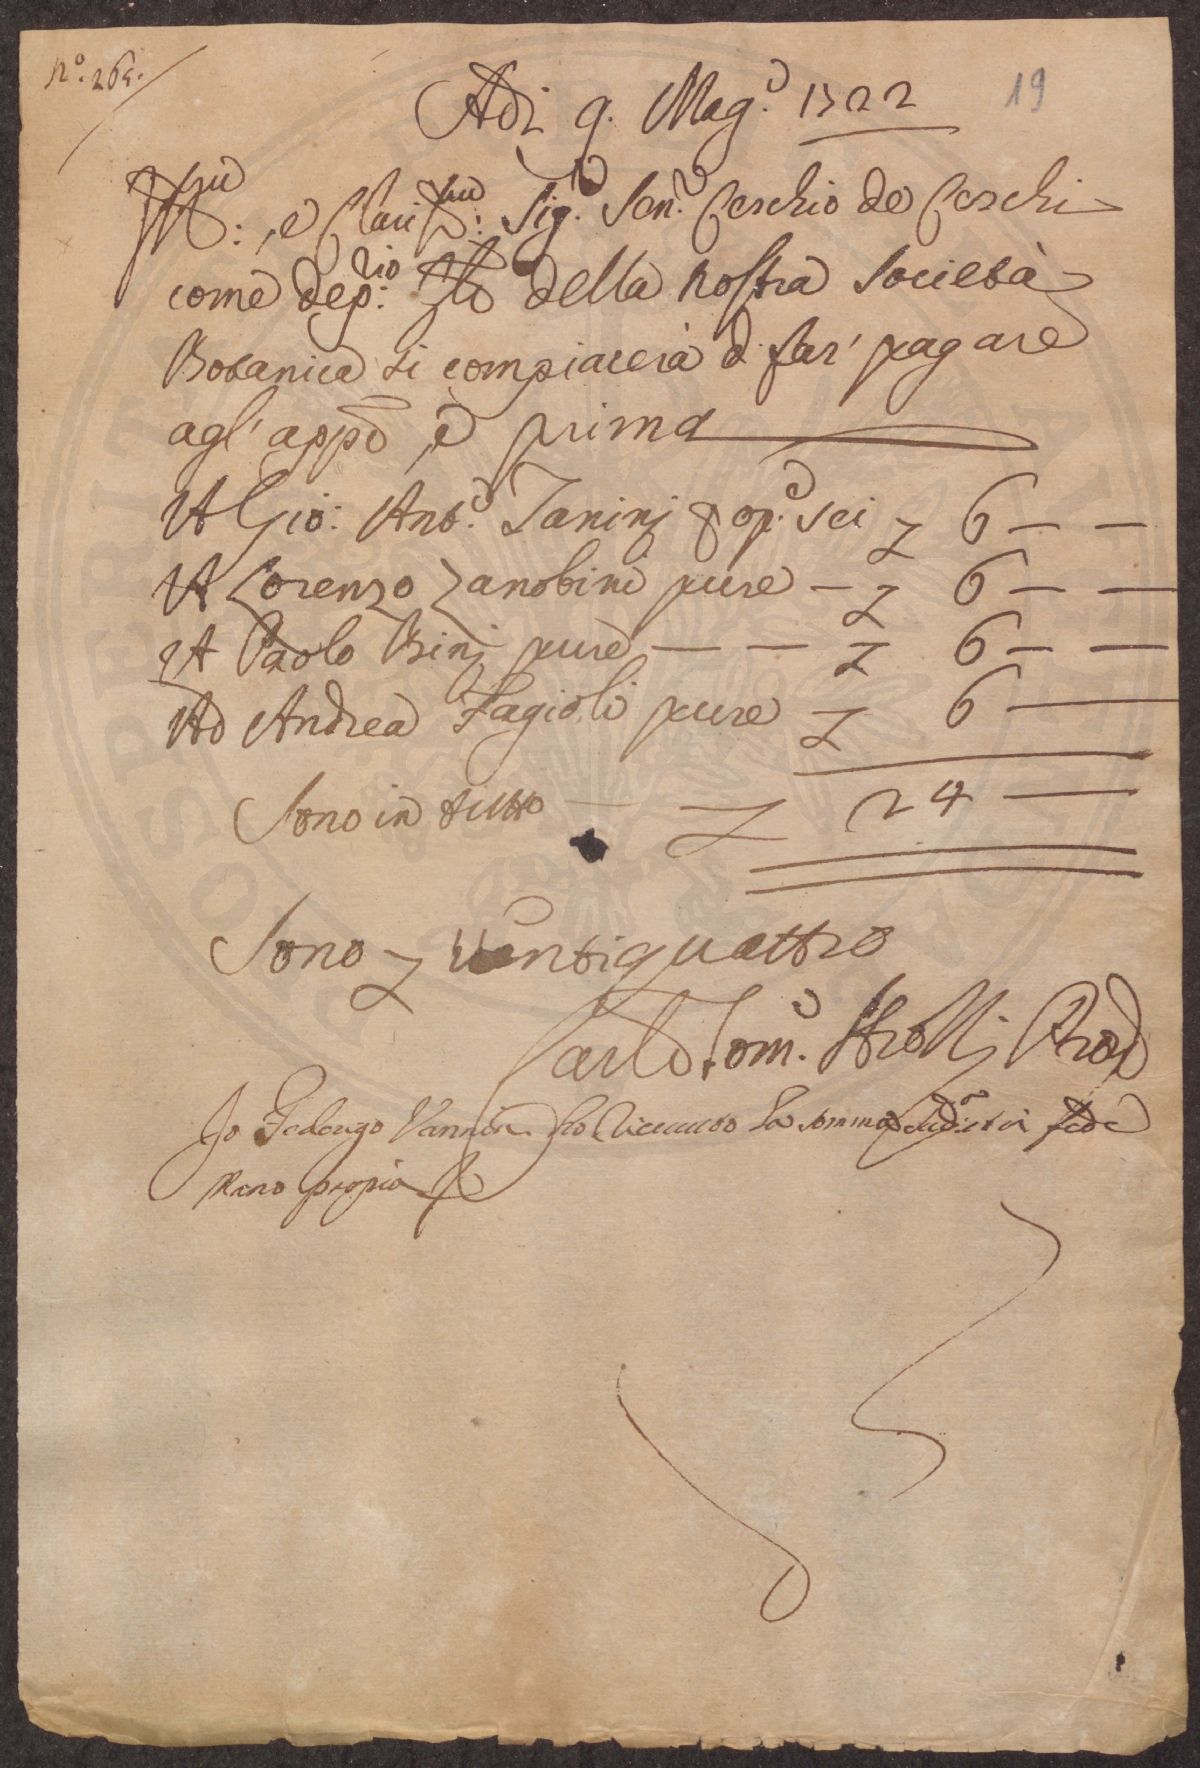 N.° 265.
Adi 9. Mag.° 1722 19
Ill.mo: e Clariss.mo: Sig.e Sen.e Cerchio de Cerchi
come dep.rio: della nostra Società
Botanica si compiacerà d far' pagare
agl' app.o, e prima
A Gio: Ant.o Zanini p op.e sei £ 6 — —
A Lorenzo Zanobini pure — £ 6 — —
A Paolo Bini pure — — £ 6 — —
Ad Andrea Fagioli pure £ 6 —
Sono in tutto — £ 24 —
Sono £ ventiquattro
Carlo Tom.o Strozzi
Io Federigo Vannini ho riceuuto la somma sud.a
Mano propia